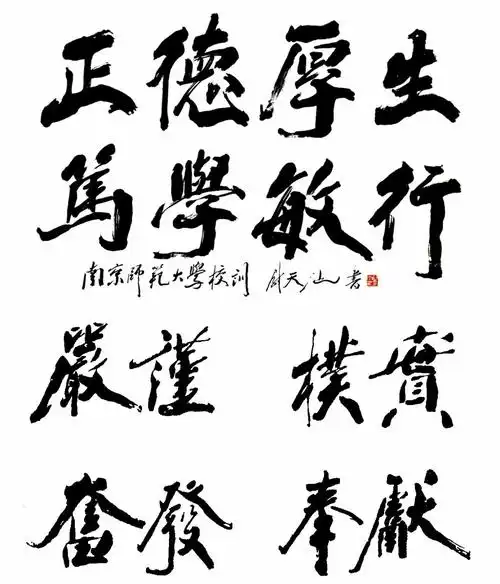 正德厚生
篤學敏行
南京師範大學校訓 尉天池書
嚴謹 樸實
奮發 奉獻